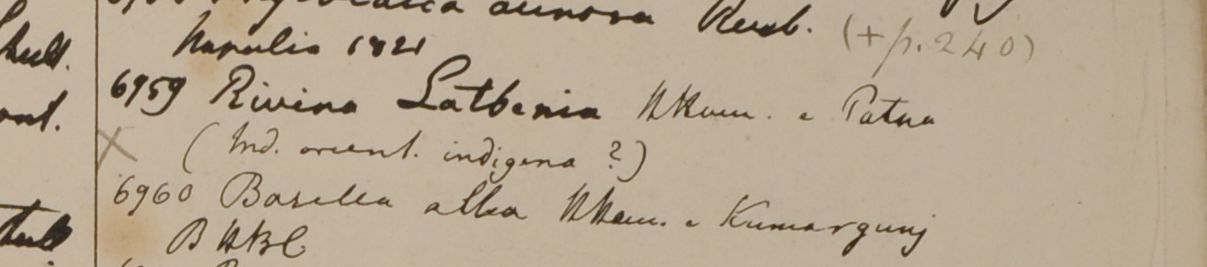 aurora Roxb. (+p. 240)
Napalia 1821
6959 Rivina Latbenia HHam. e Patna
(Ind. orient. indigena ?)
6960 Basella alba HHam. e Kumargunj
B HBC